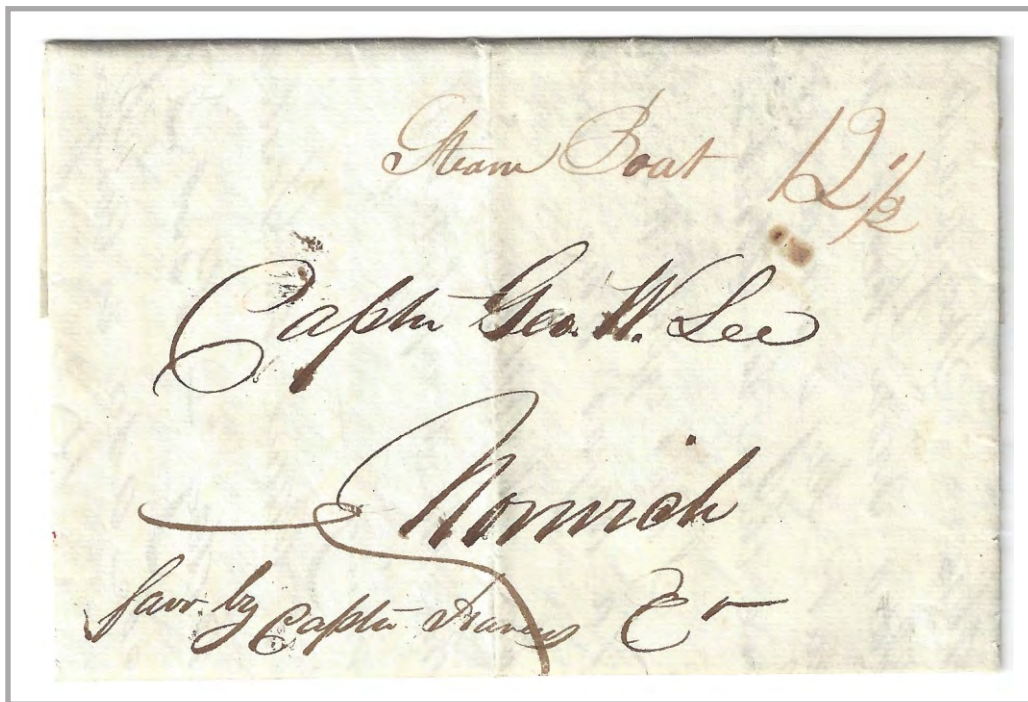 Steam Boat 12 1/2
Captn Geo. W. Lee
Norwich
favr. by Captn Havens Ct